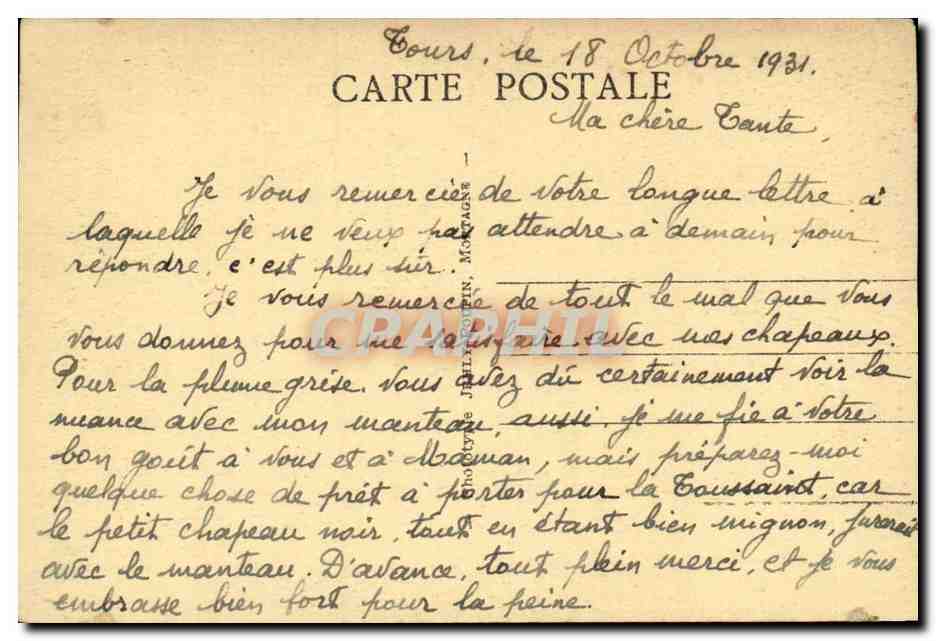 Tours, le 18 Octobre 1931.
CARTE POSTALE
Ma chère Tante,
1
Je vous remercie de votre longue lettre à
laquelle je ne veux pas attendre à demain pour
répondre, c'est plus sûr.
Je vous remercie de tout le mal que vous
vous donnez pour me satisfaire avec mes chapeaux.
Pour la plume grise, vous avez dû certainement voir la
nuance avec mon manteau, aussi, je me fie à votre
bon goût à vous et à Maman, mais préparez-moi
quelque chose de prêt à porter pour la Toussaint, car
le petit chapeau noir, tout en étant bien mignon, jurerait
avec le manteau. D'avance, tout plein merci, et je vous
embrasse bien fort pour la peine.
Phototypie POUPIN, MORTAGNE
CPAPHIL